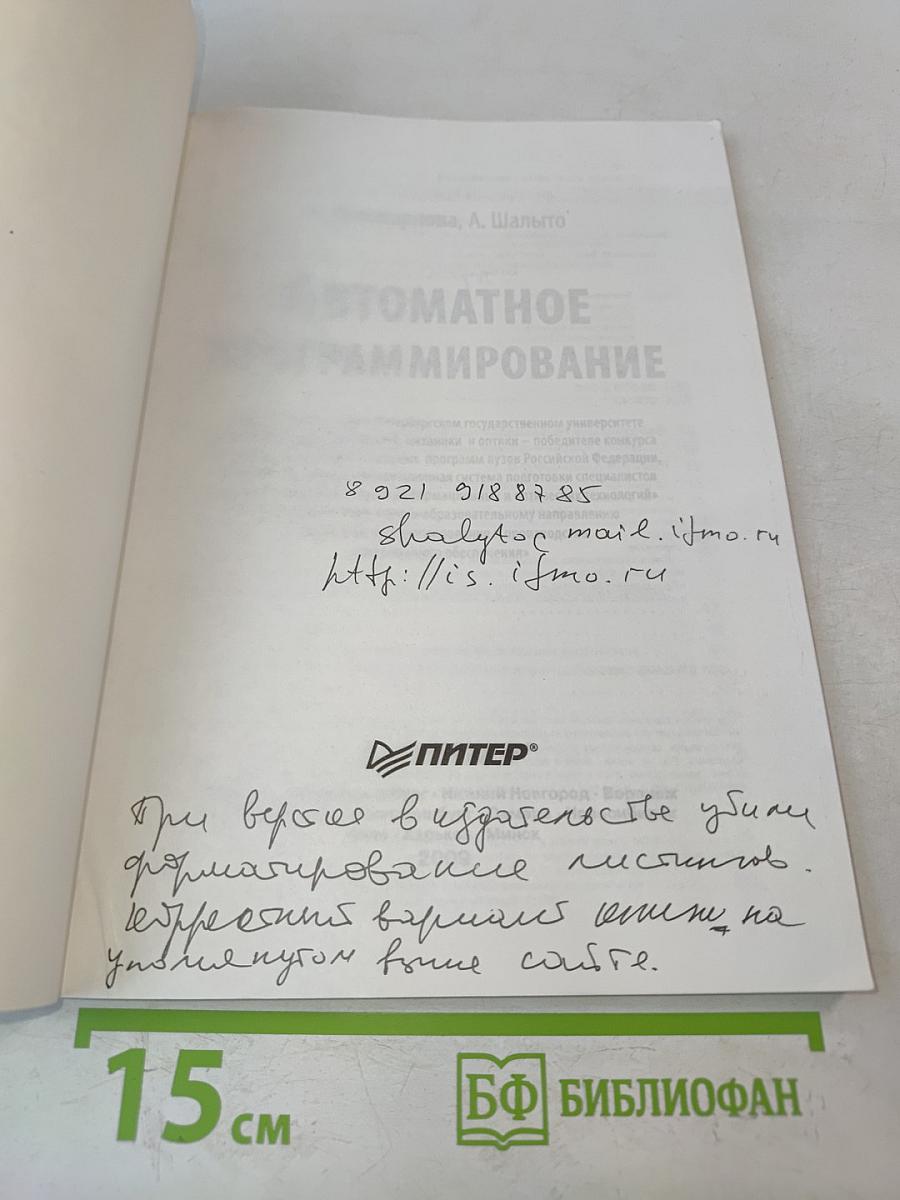 А. Шалыто
АВТОМАТНОЕ
ПРОГРАММИРОВАНИЕ
государственном университете
механики и оптики – победителе конкурса
программ вузов Российской Федерации,
система подготовки специалистов
технологий»
образовательному направлению
8 921 9188785
shalyto@mail.ifmo.ru
обеспечения»
http://is.ifmo.ru
ПИТЕР®
Нижний Новгород · Воронеж
При верстке в издательстве убили
Минск
форматирование листингов.
2009
Корректный вариант книги на
упомянутом выше сайте.
15 см
БФ БИБЛИОФАН